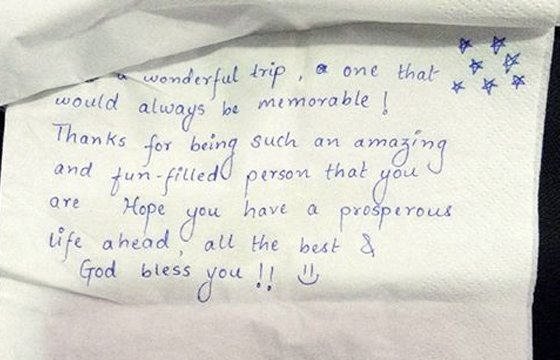 a wonderful trip, a one that
would always be memorable!
Thanks for being such an amazing
and fun-filled person that you
are Hope you have a prosperous
life ahead, all the best &
God bless you!! :)